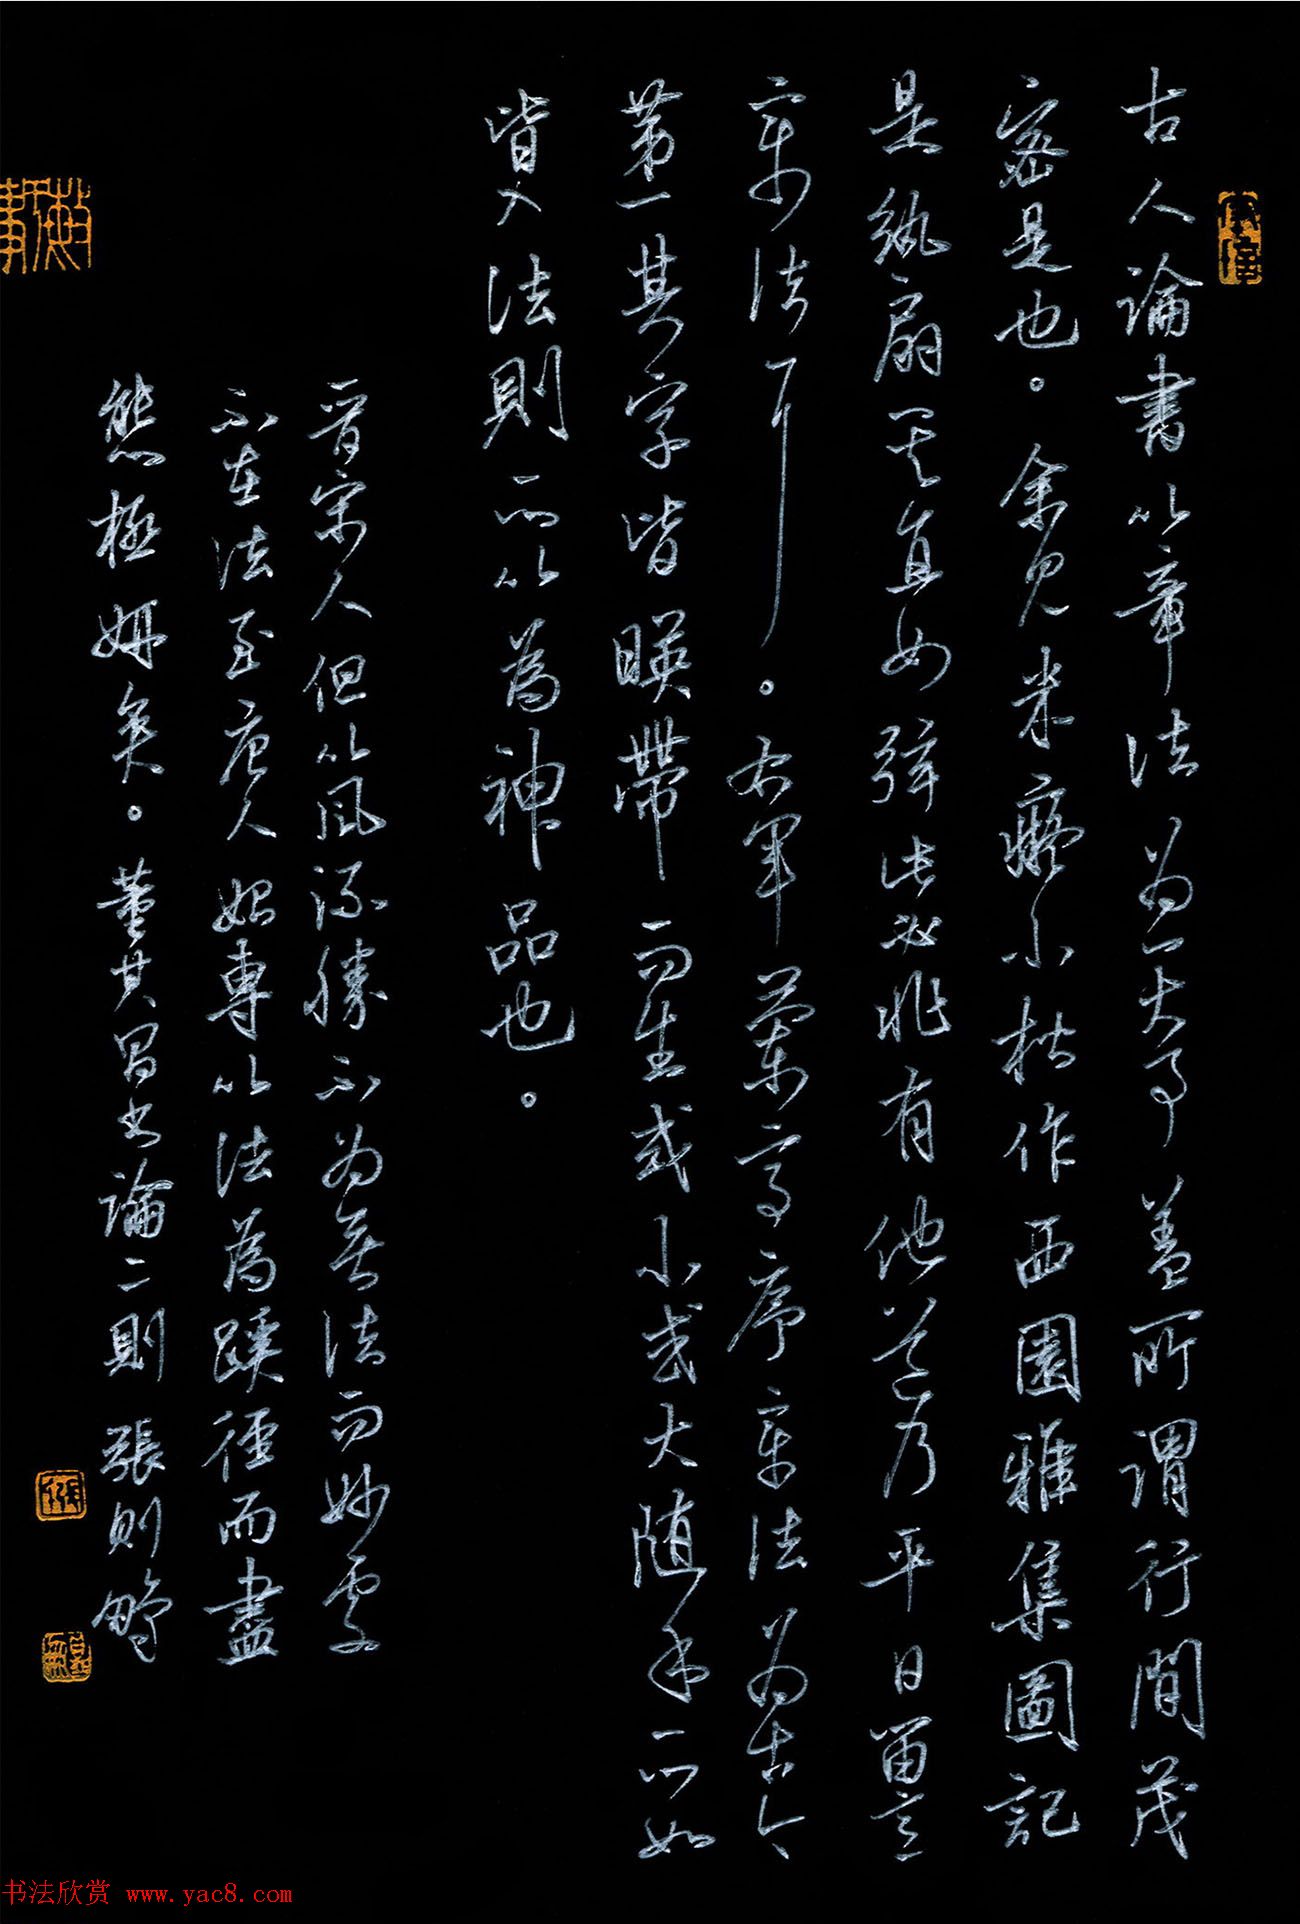 古人論書以章法為一大事蓋所謂行間茂
密是也。余見米癡小楷作西園雅集圖記
是紈扇其直如弦此必非有他道乃平日留意
章法耳。右軍蘭亭序章法為古今
第一其字皆暎帶而生或小或大随手所如
皆入法則所以為神品也。
晉宋人但以風流勝不為無法而妙處
不在法至唐人始專以法為蹊徑而盡
態極妍矣。董其昌書論二則張則
书法欣赏 www.yac8.com